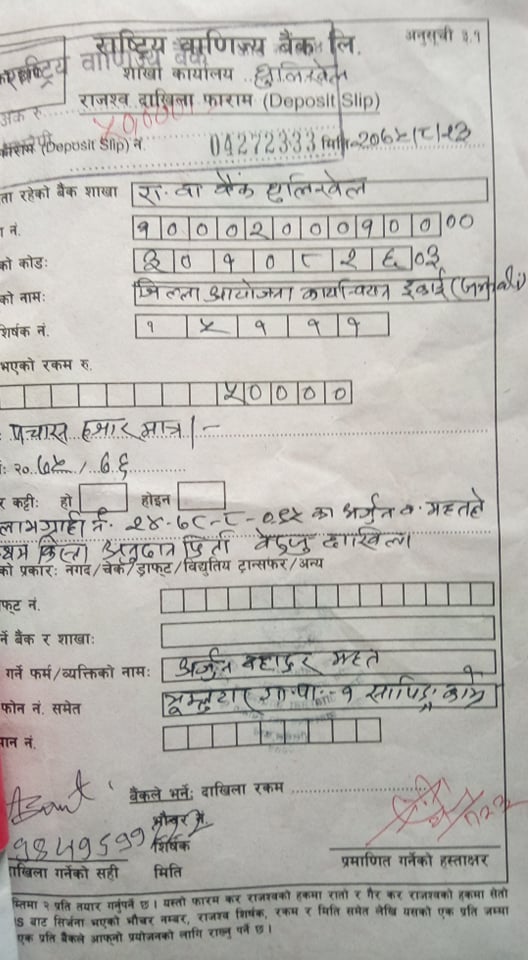 राष्ट्रिय वाणिज्य बैंक लि.
अनुसूची ३.१
राष्ट्रिय वाणिज्य बैंक
शाखा कार्यालय धुलिखेल
राजश्व दाखिला फाराम (Deposit Slip)
५००००
फाराम (Deposit Slip) नं. 04272333 मिति २०७५/८/२३
ता रहेको बैंक शाखा रा. वा बैंक धुलिखेल
नं. १०००२०००१०००००
को कोड: ३०१०८२६०३
को नाम: जिल्ला आयोजना कार्यान्वयन इकाई
शिर्षक नं. १५१११
भएको रकम रु.
५००००
पचास हजार मात्र।-
२०७५/७६
र कट्टी: हो होइन
लाभग्राही नं. २४-७८-८- का अर्जुन ब. महतले
किस्ता अनुदान फिर्ता दाखिला
को प्रकार: नगद/चेक/ड्राफ्ट/विद्युतिय ट्रान्सफर/अन्य
फ्ट नं.
र्ने बैंक र शाखा:
गर्ने फर्म/व्यक्तिको नाम: अर्जुन बहादुर महत
फोन नं. समेत भूम्लुटार गा.पा.-१ काभ्रे
यान नं.
बैंकले भर्ने: दाखिला रकम
भौचर नं.
98495994
शिर्षक
दाखिला गर्नेको सही मिति प्रमाणित गर्नेको हस्ताक्षर
स्तिमा २ प्रति तयार गर्नुपर्ने छ। यस्तो फारम कर राजश्वको हकमा रातो र गैर कर राजश्वको हकमा सेतो
IS बाट सिर्जना भएको भौचर नम्बर, राजश्व शिर्षक, रकम र मिति समेत लेखि यसको एक प्रति जम्मा
एक प्रति बैंकले आफ्नो प्रयोजनको लागि राख्नु पर्ने छ।